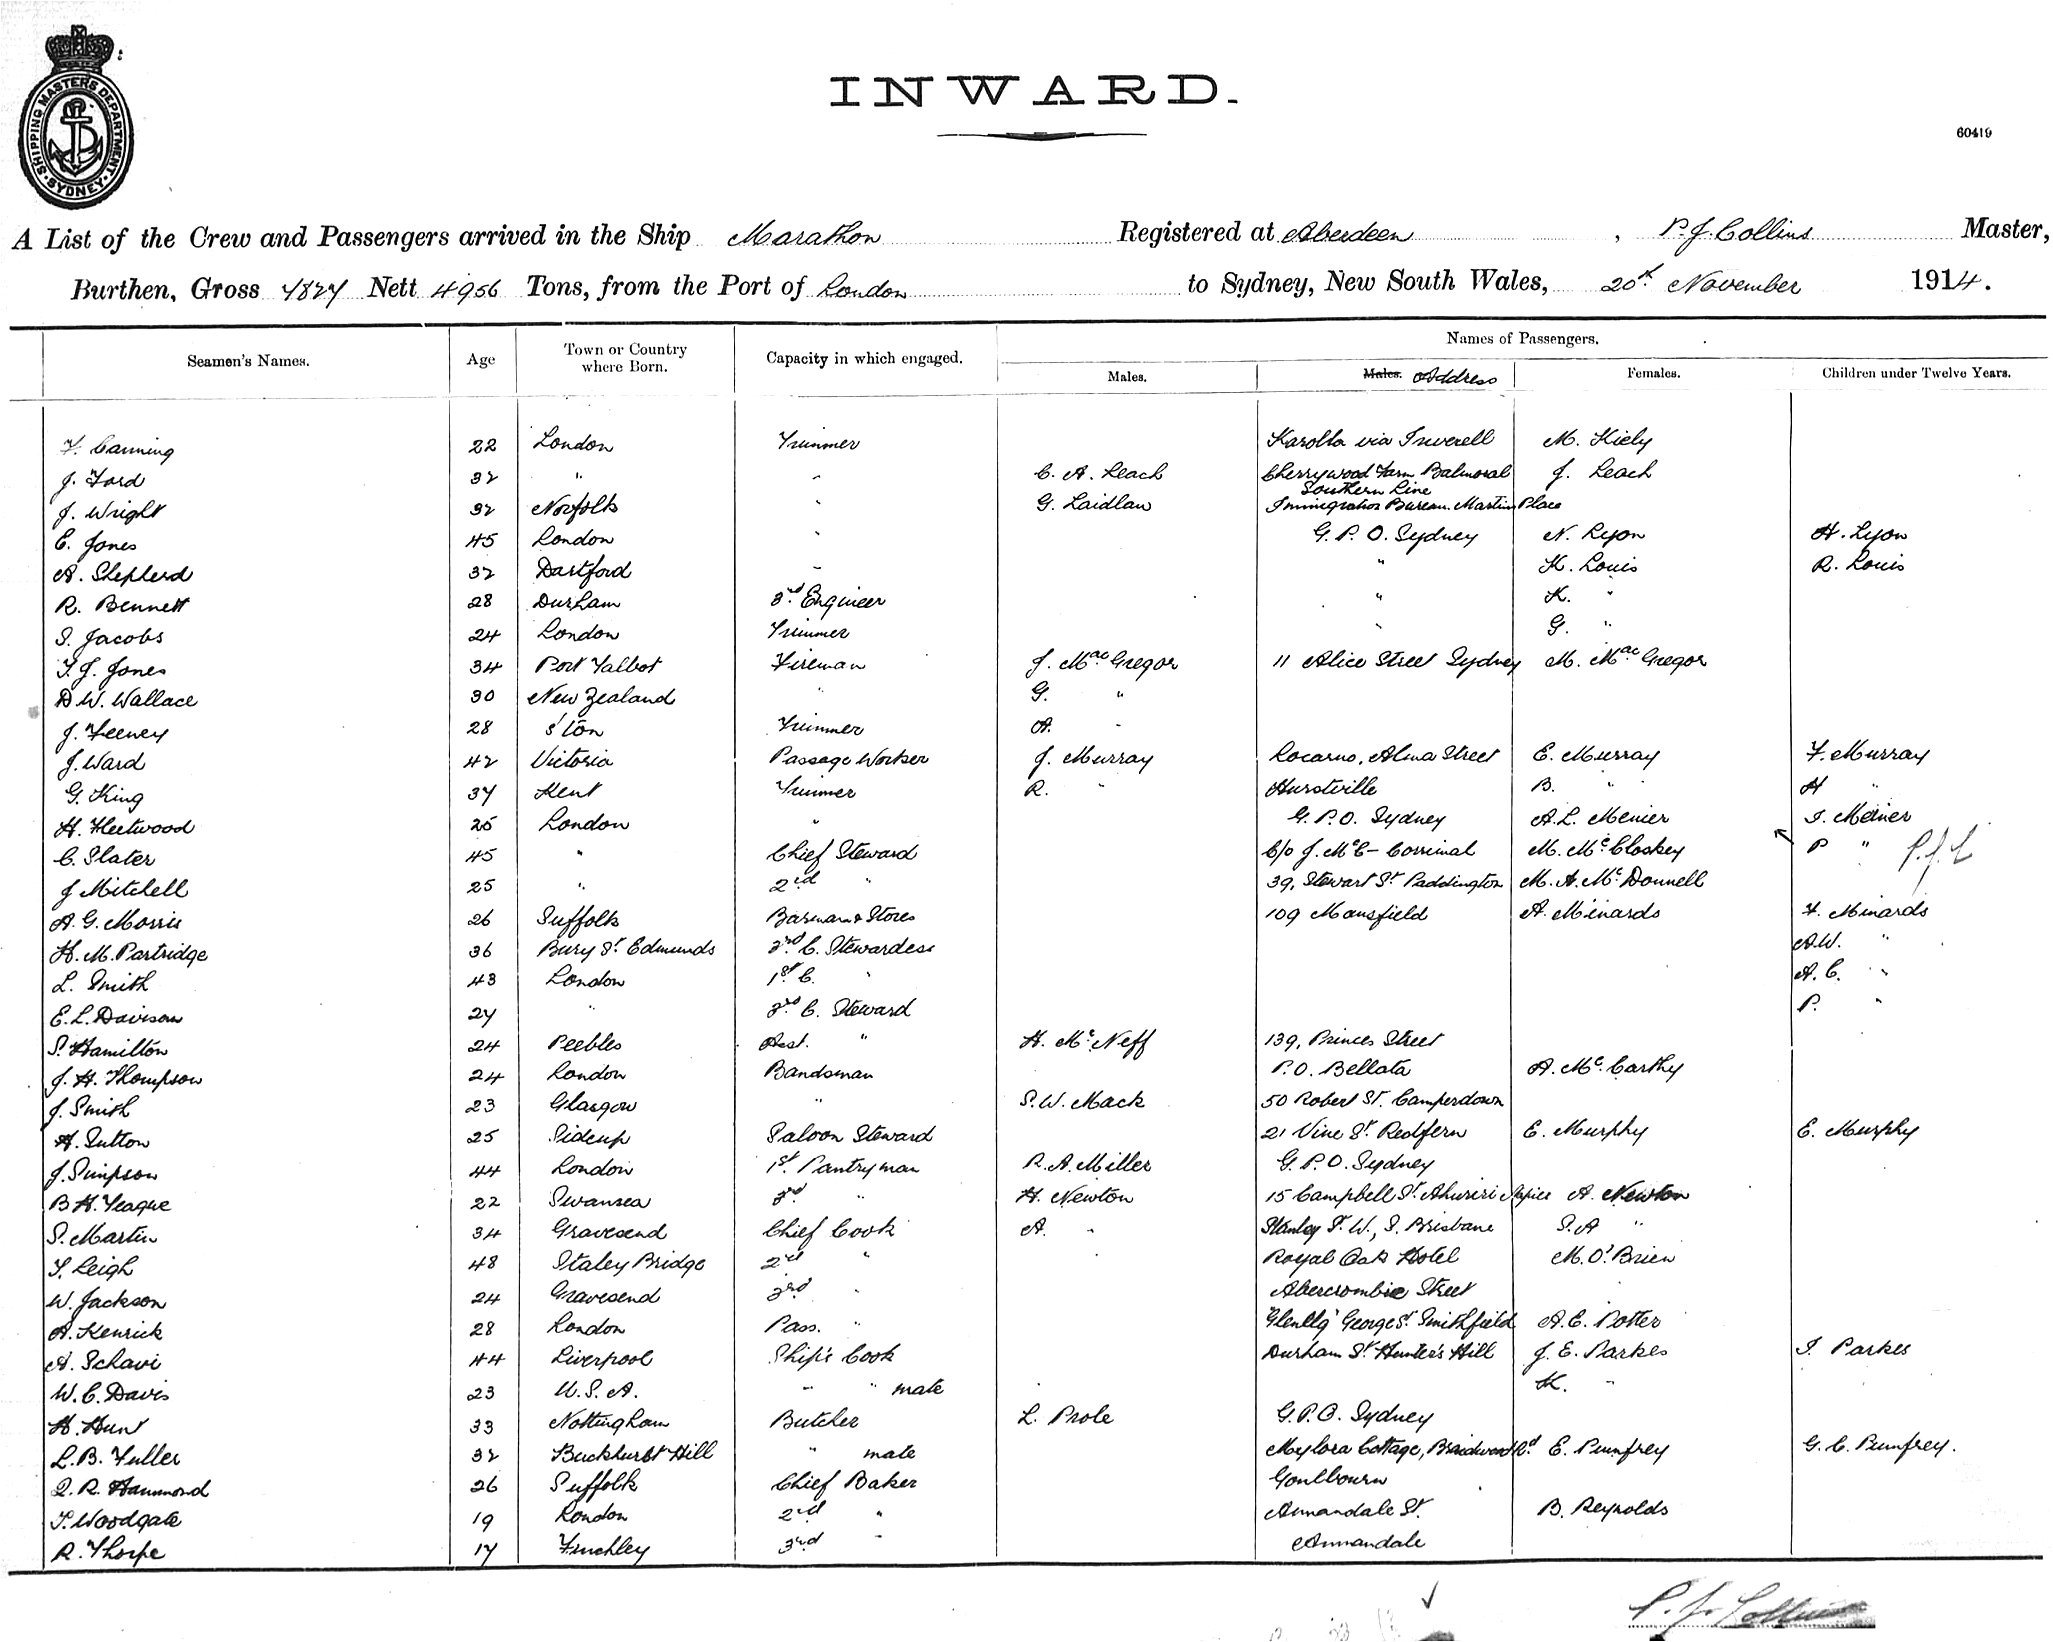 SHIPPING MASTERS DEPARTMENT
SYDNEY
INWARD.
60419
A List of the Crew and Passengers arrived in the Ship Marathon Registered at Aberdeen, P. J. Collins Master,
Burthen, Gross 7827 Nett 4956 Tons, from the Port of London to Sydney, New South Wales, 20th November 1914.
Names of Passengers.
Seamen's Names. Age Town or Country where Born. Capacity in which engaged. Males. Males. Address Females. Children under Twelve Years.
F. Canning 22 London Trimmer Karolla via Inverell M. Kiely
J. Ford 32 " " C. A. Leach Cherrywood Farm Balmoral J. Leach
Southern Line
J. Wright 32 Norfolk " G. Laidlaw Immigration Bureau. Martin Place
C. Jones 45 London " G. P. O. Sydney N. Lyon H. Lyon
A. Shepherd 32 Dartford " " K. Louis R. Louis
R. Bennett 28 Durham 3rd Engineer " K. "
S. Jacobs 24 London Trimmer " G. "
T. J. Jones 34 Port Talbot Fireman J. MacGregor 11 Alice Street Sydney M. MacGregor
D. W. Wallace 30 New Zealand " G. "
J. Feeney 28 Trimmer A. "
J. Ward 42 Victoria Passage Worker J. Murray Locarno, Alma Street E. Murray F. Murray
G. King 37 Kent Trimmer R. " Hurstville B. " H "
H. Fleetwood 25 London " G. P. O. Sydney A. L. Menier I. Meiner
C. Slater 45 " Chief Steward C/o J. McC- Corrimal M. McCloskey P " P.J.C
J Mitchell 25 " 2nd " 39, Stewart St Paddington M. A. McDonnell
A. G. Morris 26 Suffolk Barman & Stores 109 Mansfield A. Minards F. Minards
H. M. Partridge 36 Bury St. Edmunds 3rd C. Stewardess A.W. "
L. Smith 43 London 1st C. " A. C. "
E. L. Davison 27 " 3rd C. Steward P. "
S. Hamilton 24 Peebles Asst. " H. McNeff 139, Princes Street
J. H. Thompson 24 London Bandsman P.O. Bellata A. McCarthy
J. Smith 23 Glasgow " S. W. Mack 50 Robert St. Camperdown
H. Sutton 25 Sidcup Saloon Steward 21 Vine St. Redfern E. Murphy E. Murphy
J. Simpson 44 London 1st. Pantryman R. A. Miller G. P. O. Sydney
B H. Teague 22 Swansea 3rd " H. Newton 15 Campbell St. Ahuriri Napier A. Newton
S. Martin 34 Gravesend Chief Cook A. " Stanley St. W., S. Brisbane S. A "
T. Leigh 48 Staley Bridge 2nd " Royal Oak Hotel M. O'Brien
W. Jackson 24 Gravesend 3rd " Abercrombie Street
A. Kenrick 28 London Pass. " "Glenelg" George St. Smithfield A. E. Potter
A. Schavi 44 Liverpool Ship's Cook Durham St. Hunter's Hill J. E. Parkes I. Parkes
W. C. Davis 23 U. S. A. " " mate K. "
H. Hunt 33 Nottingham Butcher L. Prole G. P. O. Sydney
L. B. Fuller 32 Buckhurst Hill " mate Mylora Cottage, Braidwood Rd E. Pumfrey G. C. Pumfrey.
Q. R. Hammond 26 Suffolk Chief Baker Goulbourn
T. Woodgate 19 London 2nd " Annandale St. B. Reynolds
R. Thorpe 17 Finchley 3rd " Annandale
P. J. Collins